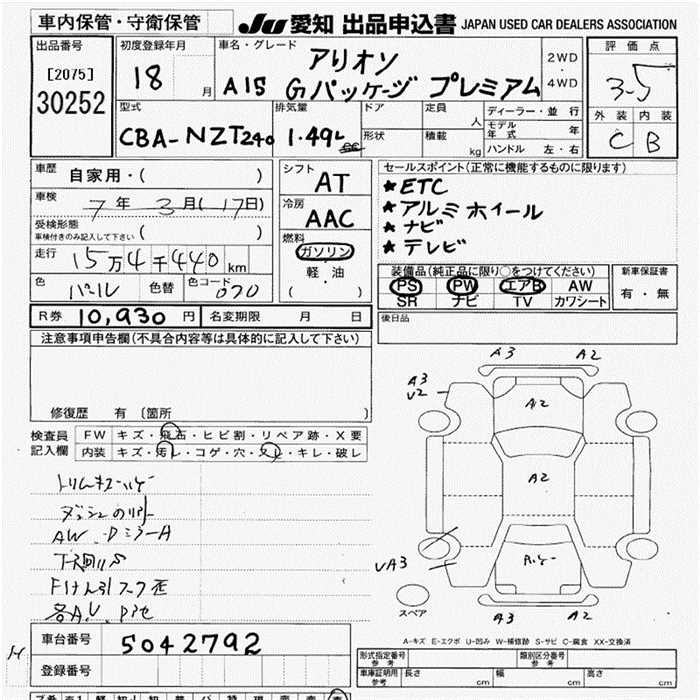 車内保管・守衛保管
JU 愛知 出品申込書 JAPAN USED CAR DEALERS ASSOCIATION
出品番号
[2075]
30252
初度登録年月
18 月
車名・グレード
アリオン
A15 Gパッケージ プレミアム
2WD
・
4WD
評価点
3-5
外装 内装
C B
型式
CBA-NZT240
排気量
1.49L
ドア
形状
定員
人
積載
kg
ディーラー・並行
モデル年式 年
ハンドル 左・右
車歴
自家用・( )
車検
7年 3月(17日)
受検形態
車検付きのみ記入して下さい ( )
走行 15万4千440km
色 パール 色替 色コード 070
シフト
AT
冷房
AAC
燃料
ガソリン
軽・油
( )
セールスポイント(正常に機能するものに限ります)
★ETC
★アルミホイール
★ナビ
★テレビ
装備品(純正品に限り○をつけてください)
PS PW エアB AW
SR ナビ TV カワシート
新車保証書
有・無
R券 10,930 円 名変期限 月 日
後日品
注意事項申告欄(不具合内容等は具体的に記入して下さい)
修復歴 有 〔箇所 〕
検査員
記入欄
FW キズ・飛石・ヒビ割・リペア跡・X要
内装 キズ・汚レ・コゲ・穴・スレ・キレ・破レ
AW.DミラーA
A3 A2
A3
U2
A2
A2
UA3
スペア
A3 A2
A-キズ E-エクボ U-凹み W-補修跡 S-サビ C-腐食 XX-交換済
車台番号 5042792
登録番号
形式指定番号
参考
類別区分番号
参考
車庫証明用
参考
長さ cm 幅 cm 高さ cm